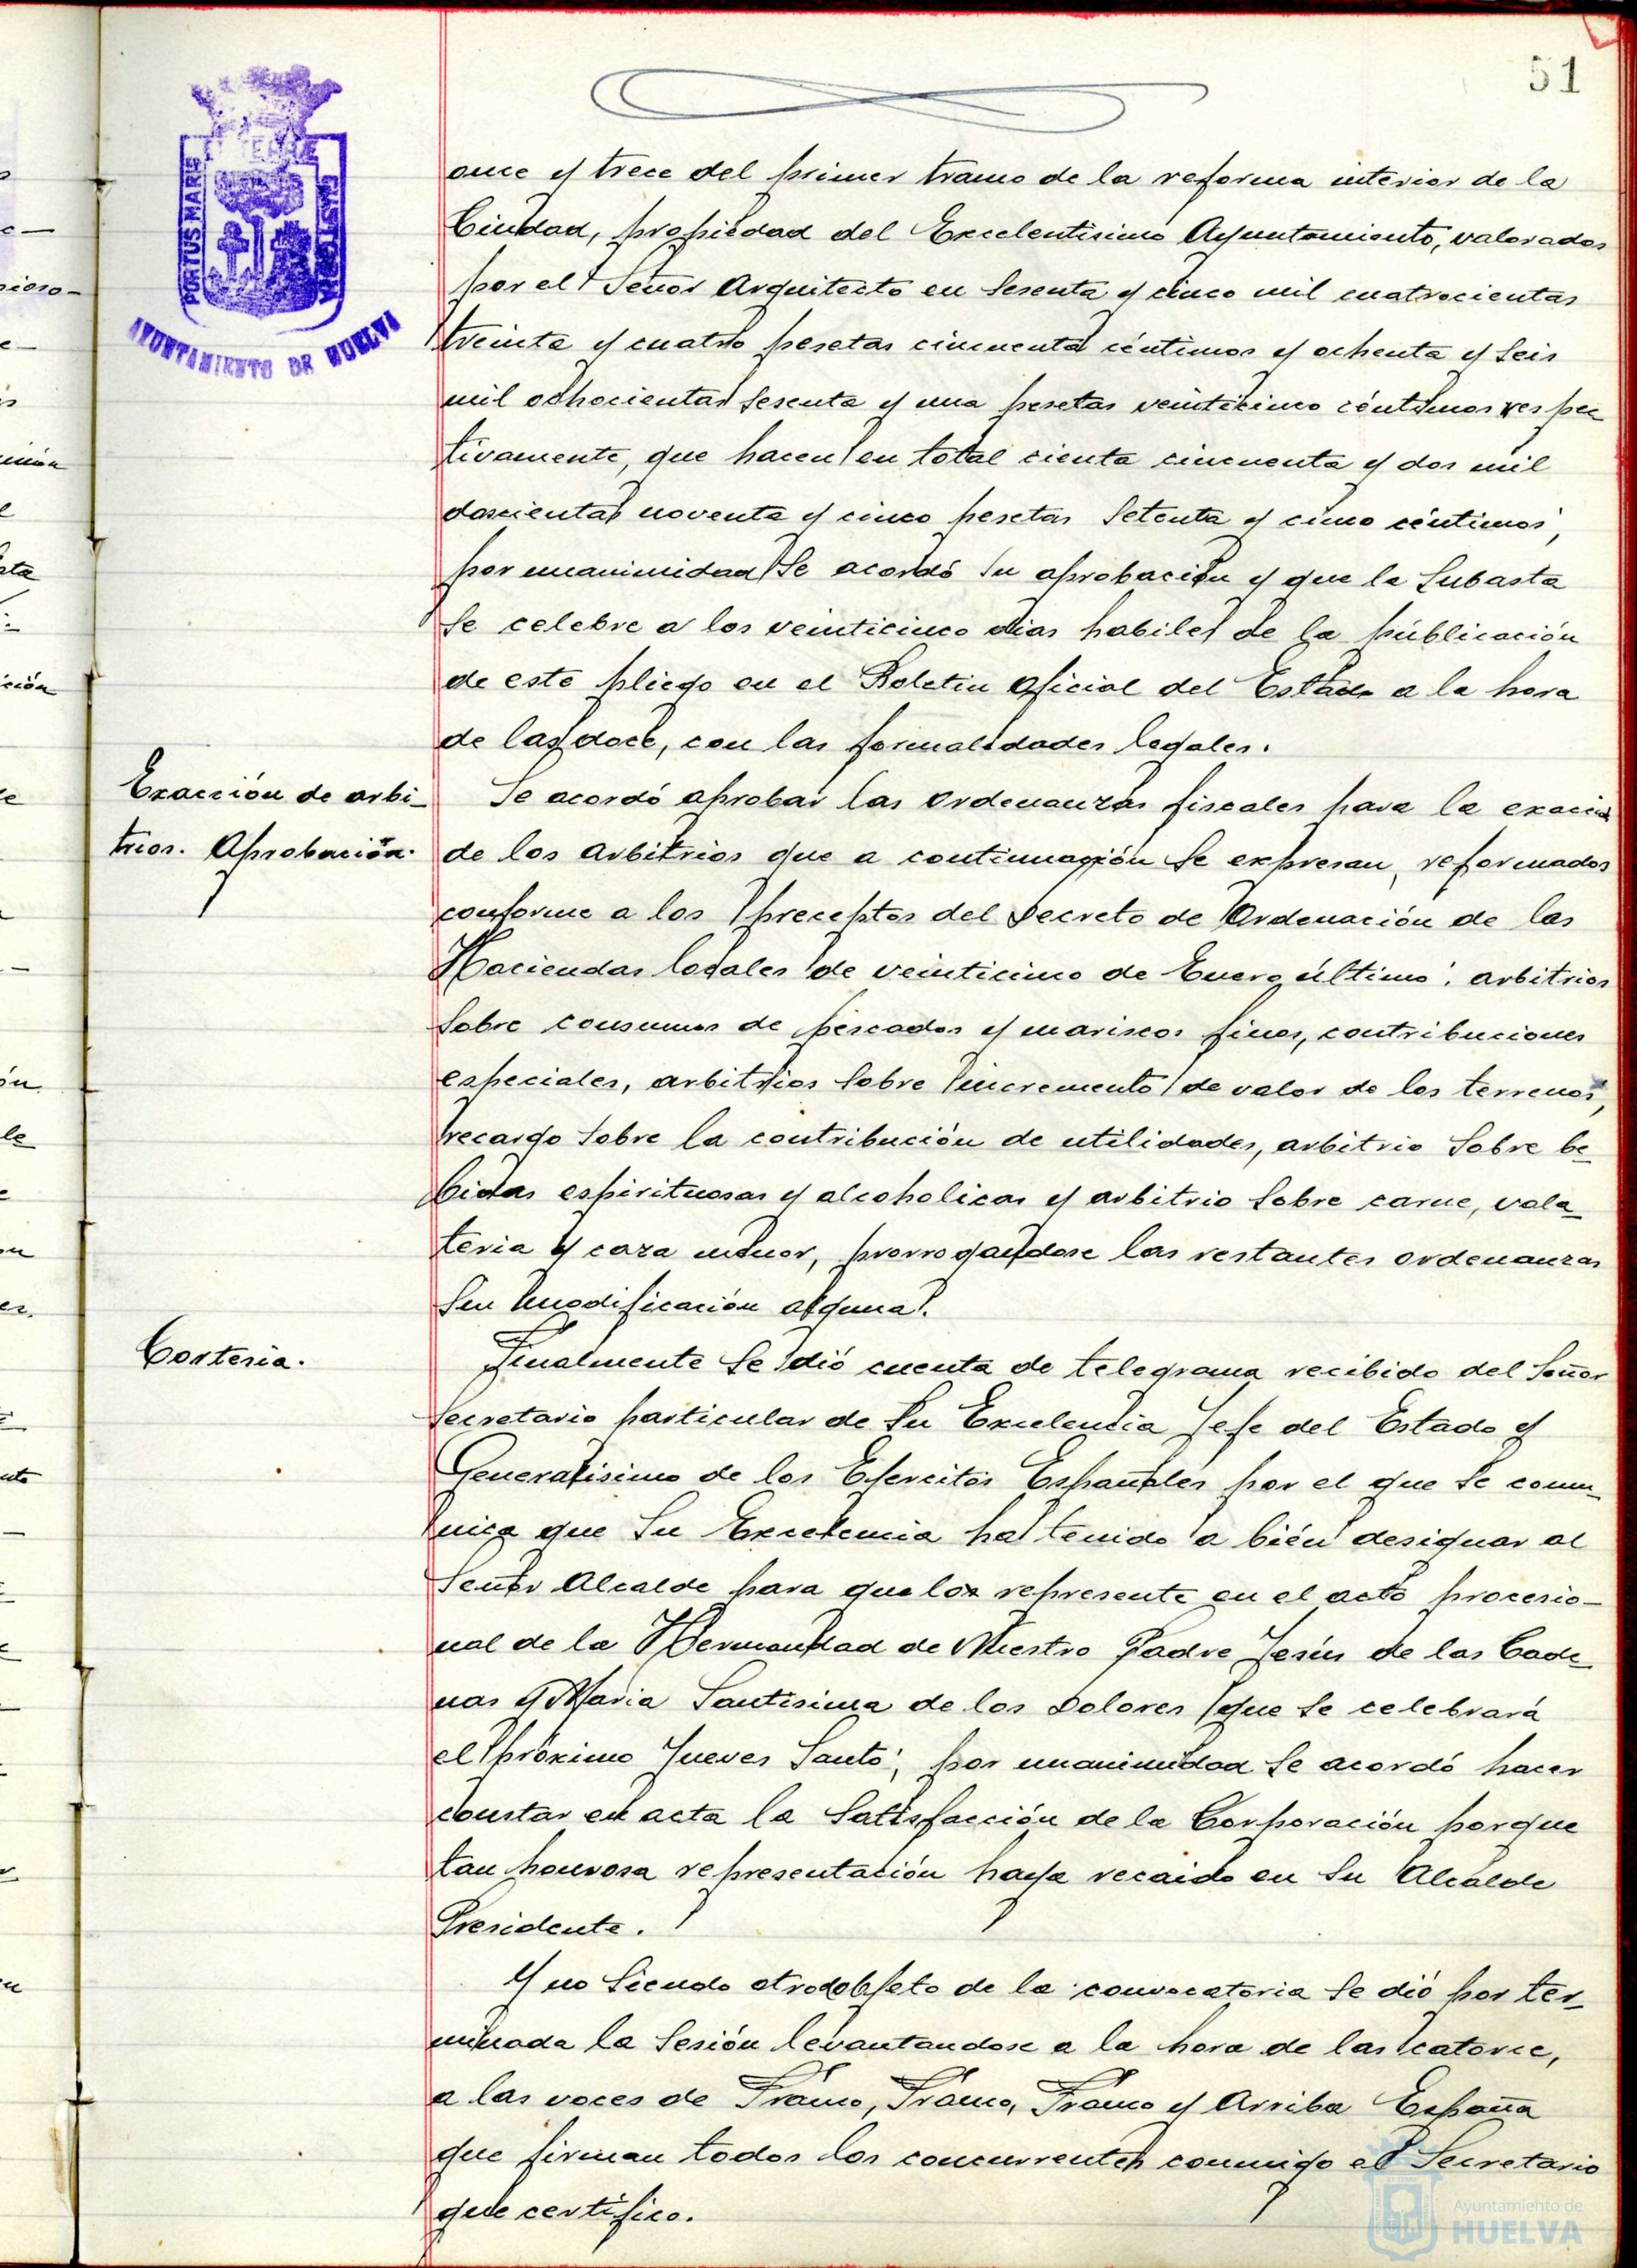 51
PORTUS MARIS
ET TERRÆ
CUSTODIA
AYUNTAMIENTO DE HUELVA
once y trece del primer tramo de la reforma interior de la
Ciudad, propiedad del Excelentísimo Ayuntamiento, valorados
por el Señor Arquitecto en sesenta y cinco mil cuatrocientas
treinta y cuatro pesetas cincuenta céntimos y ochenta y seis
mil ochocientas sesenta y una pesetas veinticinco céntimos respec
tivamente, que hacen en total cienta cincuenta y dos mil
doscientas noventa y cinco pesetas setenta y cinco céntimos,
por unanimidad se acordó su aprobación y que la subasta
se celebre a los veinticinco dias habiles de la públicación
de este pliego en el Boletin Oficial del Estado a la hora
de las doce, con las formalidades legales.
Exacción de arbi-
trios. Aprobación.
Se acordó aprobar las ordenanzas fiscales para la exacción
de los arbitrios que a continuación se expresan, reformados
conforme a los preceptos del Decreto de Ordenación de las
Haciendas locales de veinticinco de Enero último: arbitrios
sobre consumos de pescados y mariscos finos, contribuciones
especiales, arbitrios sobre incremento de valor de los terrenos,
recargo sobre la contribución de utilidades, arbitrio sobre be-
bidas espirituosas y alcoholicas y arbitrio sobre carne, vola-
teria y caza menor, prorrogandose las restantes ordenanzas
sin modificación alguna.
Cortesia.
Finalmente se dió cuenta de telegrama recibido del Señor
Secretario particular de Su Excelencia Jefe del Estado y
Generalisimo de los Ejercitos Españoles por el que se comu-
nica que Su Excelencia ha tenido a bién designar al
Señor Alcalde para que lo represente en el acto procesio-
nal de la Hermandad de Nuestro Padre Jesús de las Cade-
nas y Maria Santisima de los Dolores que se celebrará
el próximo Jueves Santo; por unanimidad se acordó hacer
constar en acta la satisfacción de la Corporación porque
tan honrosa representación haya recaido en su Alcalde
Presidente.
Y no siendo otro objeto de la convocatoria se dió por ter-
minada la sesión levantandose a la hora de las catorce,
a las voces de Franco, Franco, Franco y Arriba España
que firman todos los concurrentes conmigo el Secretario
que certifico.
Ayuntamiento de
HUELVA